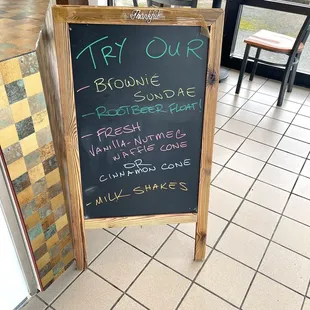 Thankful
TRY OUR
- BROWNIE
SUNDAE
- ROOTBEER FLOAT!
- FRESH
VANILLA-NUTMEG
WAFFLE CONE
OR
CINNAMON CONE
- MILK SHAKES